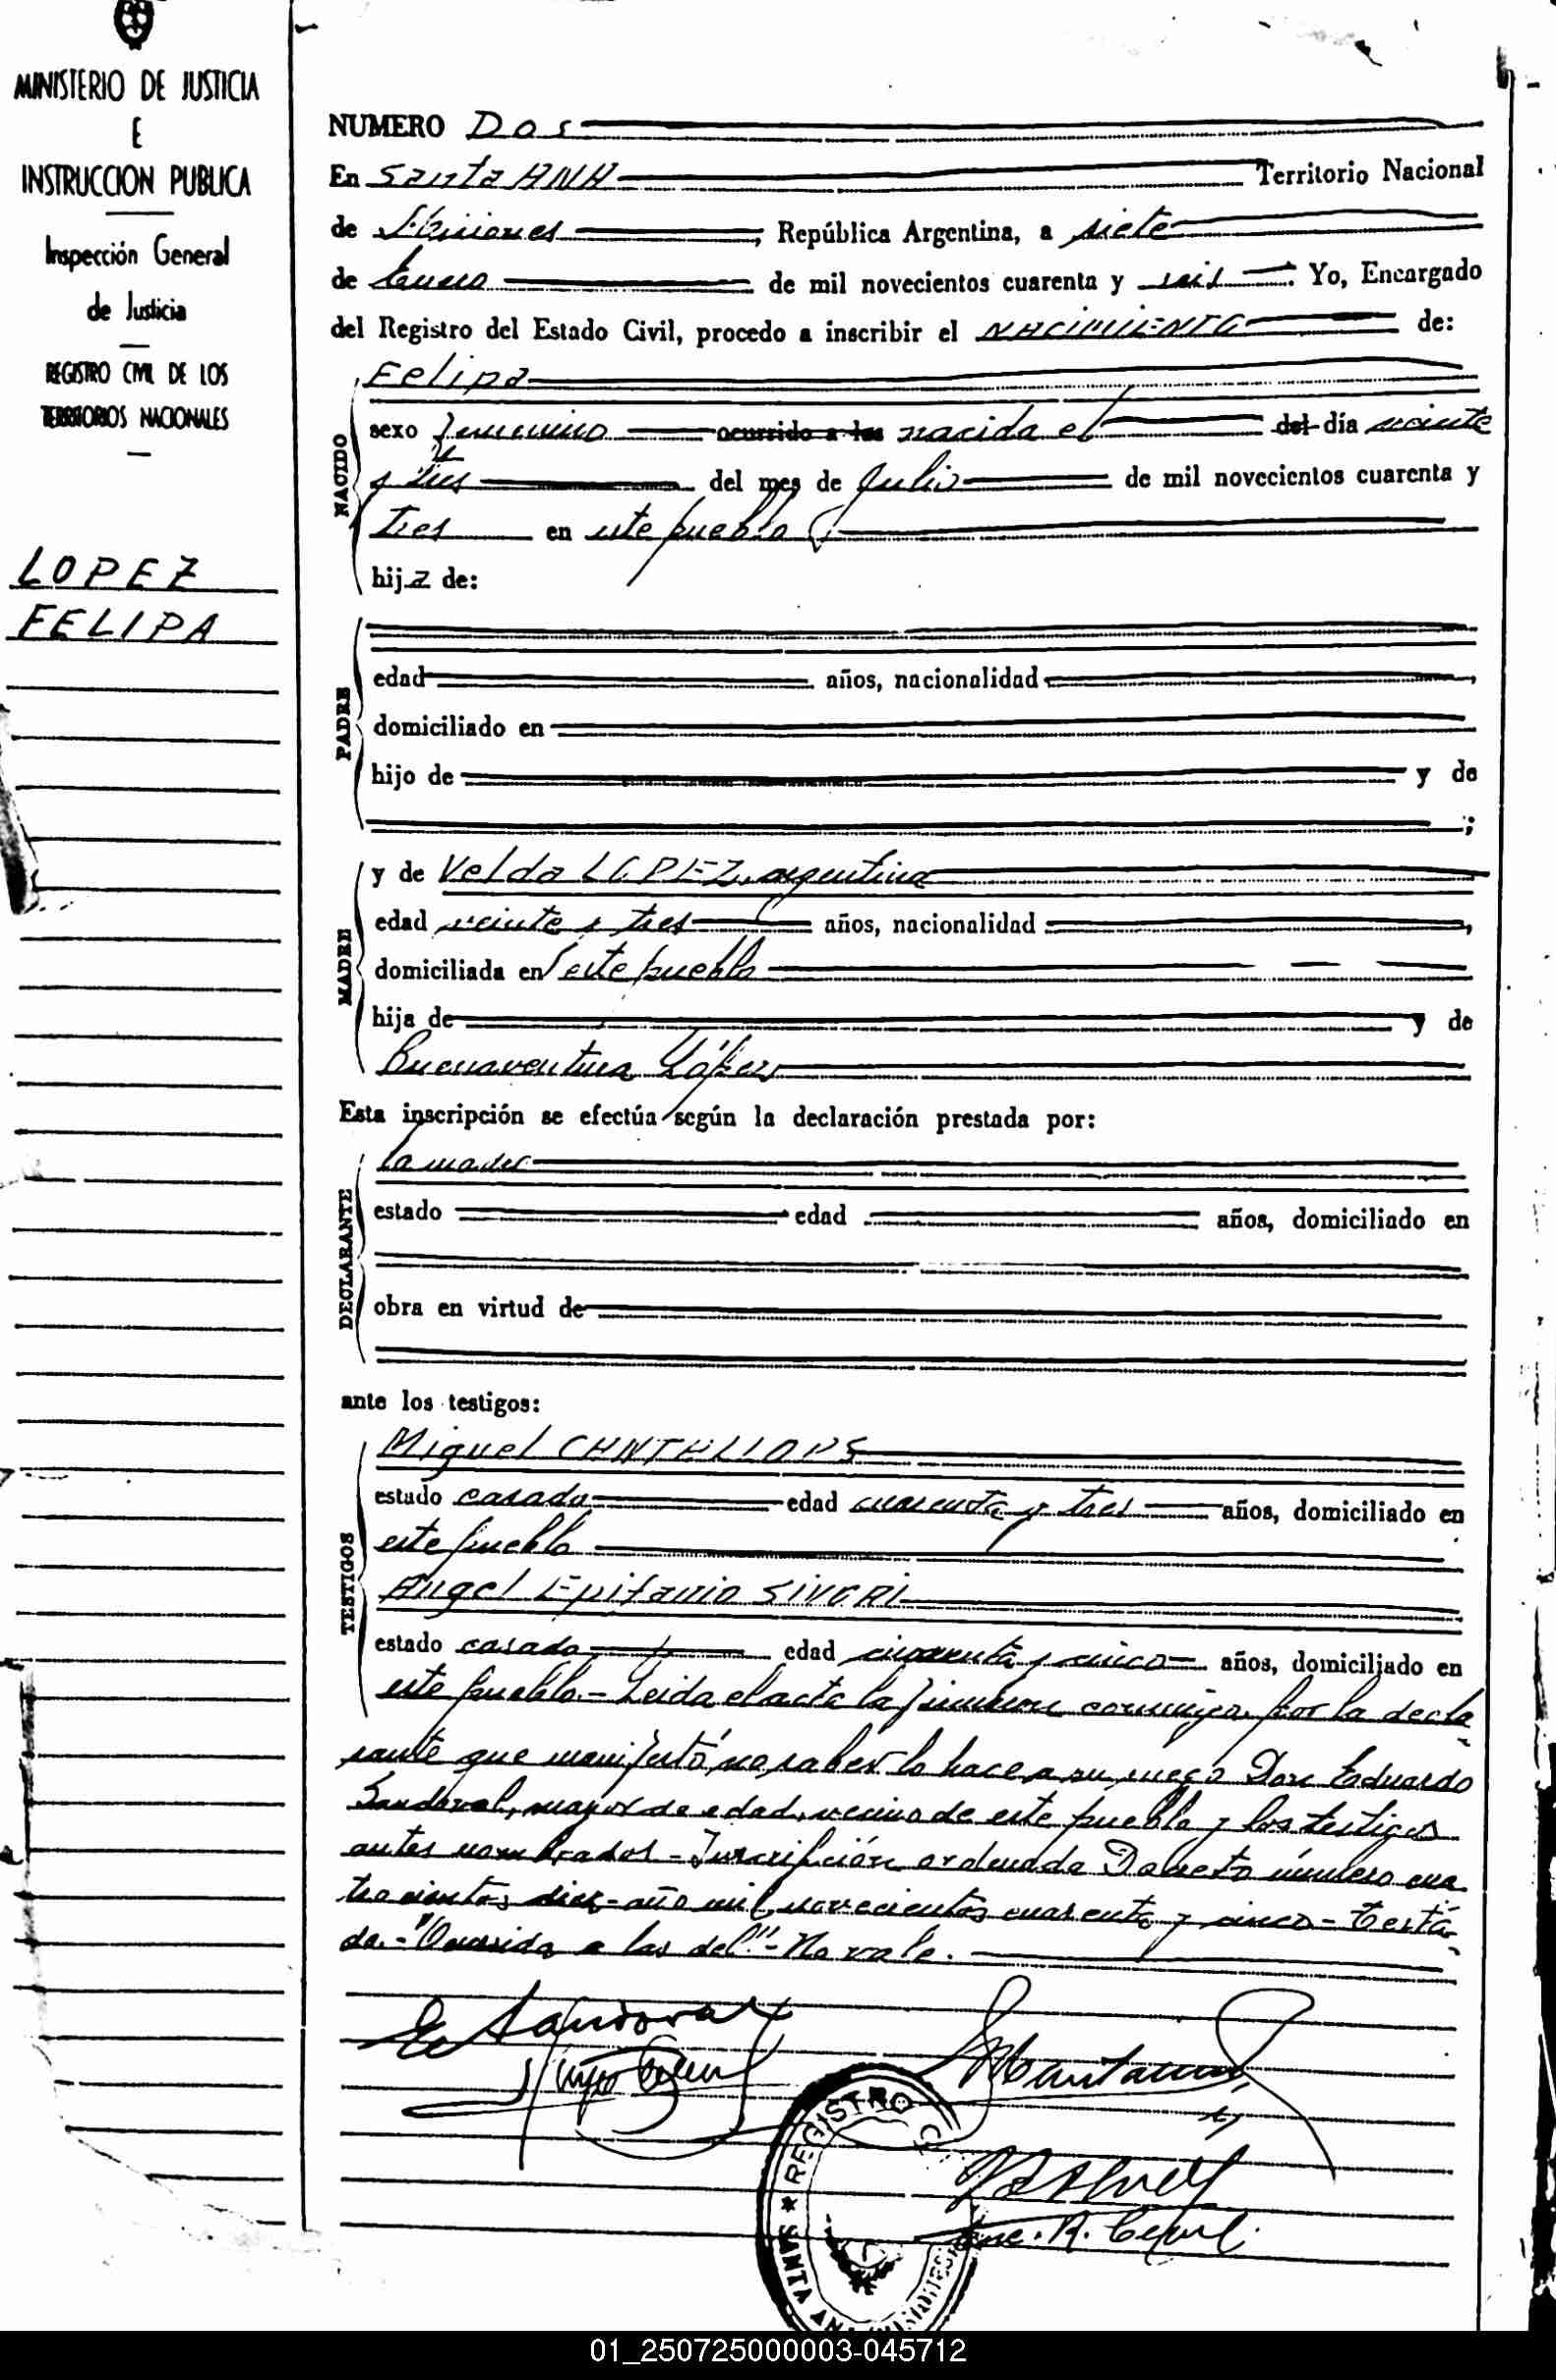 MINISTERIO DE JUSTICIA
E
INSTRUCCION PUBLICA
Inspección General
de Justicia
REGISTRO CIVIL DE LOS
TERRITORIOS NACIONALES
LOPEZ
FELIPA
NUMERO Dos
En Santa ANA Territorio Nacional
de Misiones, República Argentina, a siete
de Enero de mil novecientos cuarenta y seis. Yo, Encargado
del Registro del Estado Civil, procedo a inscribir el NACIMIENTO de:
NACIDO
Felipa
sexo femenino ocurrido a las nacida el del día veinte
y tres del mes de Julio de mil novecientos cuarenta y
Tres en este pueblo
hija de:
PADRE
edad años, nacionalidad ,
domiciliado en
hijo de y de
;
MADRE
y de Velda LOPEZ, argentina
edad veinte y tres años, nacionalidad ,
domiciliada en este pueblo
hija de y de
Buenaventura López
Esta inscripción se efectúa según la declaración prestada por:
DECLARANTE
la madre
estado edad años, domiciliado en
obra en virtud de
ante los testigos:
TESTIGOS
Miguel CANTALLOPS
estado casado edad cuarenta y tres años, domiciliado en
este pueblo
Angel Epifanio
estado casado edad y cinco años, domiciliado en
este pueblo.- Leida el acta la firman conmigo, por la decla
rante que manifestó no saber lo hace a su ruego Don Eduardo
Sandoval, mayor de edad, vecino de este pueblo y los testigos
antes nombrados - Inscripción ordenada Decreto número cua
trocientos diez - año mil novecientos cuarenta y cinco - Testa
do.- "Ocurrido a las del" - No vale.
E Sandoval
Enc. R. Civil.
★ REGISTRO
SANTA ANA
01_250725000003-045712